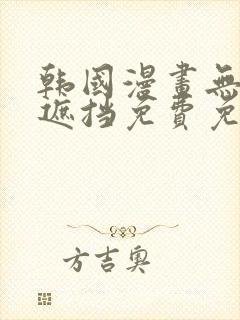 韩國漫畫無
遮挡免費免
方吉奥